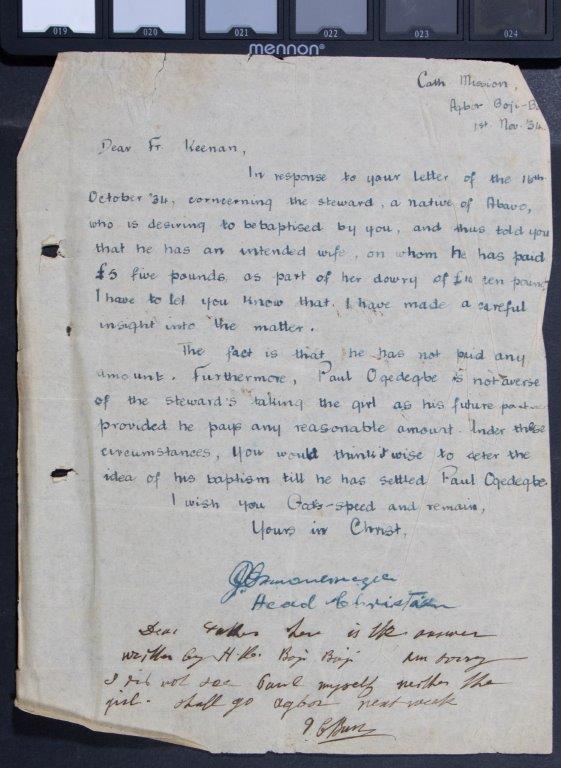 019 020 021 022 023 024
mennon®
Cath Mission,
Agbor Boji-B.
1st. Nov. '34.
Dear Fr. Keenan,
In response to your letter of the 16th
October '34, corncerning the steward, a native of Abavo,
who is desiring to be baptised by you, and thus told you
that he has an intended wife, on whom he has paid
£5 five pounds as part of her dowry of £10 ten pounds
I have to let you know that I have made a careful
insight into the matter.
The fact is that he has not paid any
amount. Furthermore, Paul Ogedegbe is not averse
of the steward's taking the girl as his future partner
provided he pays any reasonable amount. Under these
circumstances, you would think it wise to defer the
idea of his baptism till he has settled Paul Ogedegbe.
I wish you God's-speed and remain,
Yours in Christ,
Head Christian
Dear Father here is the answer
written by H. Boji Boji am sorry
I did not see Paul myself neither the
girl. shall go Agbor next week